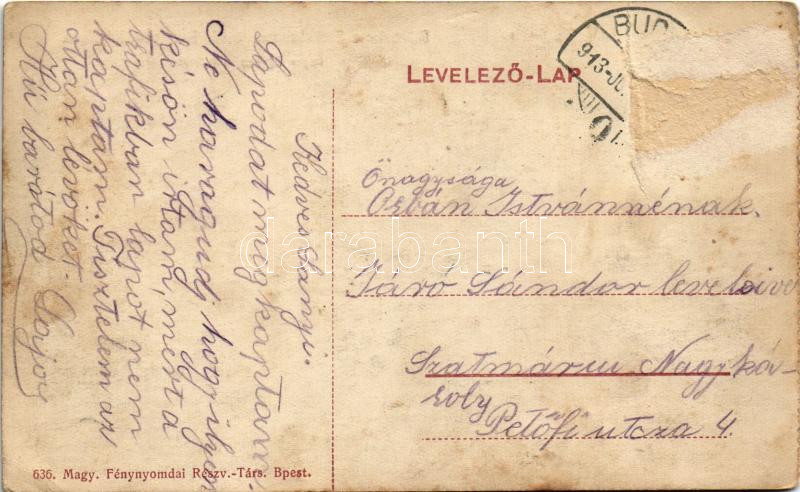 LEVELEZŐ-LAP
BUD
913-JU
VIII
Kedves Sanyi.
Lapodat meg kaptam.
Ne haragudj hogy ilyen
késön irtam, mert a
trafikban lapot nem
kaptam. Tisztelem az
ottan levöket.
Hű barátod Lajos
Őnagysága
Orbán Istvánnénak.
Járó Sándor
Szatmárm Nagyká-
roly
Petőfi utcza 4.
636. Magy. Fénynyomdai Részv.-Társ. Bpest.
darabanth